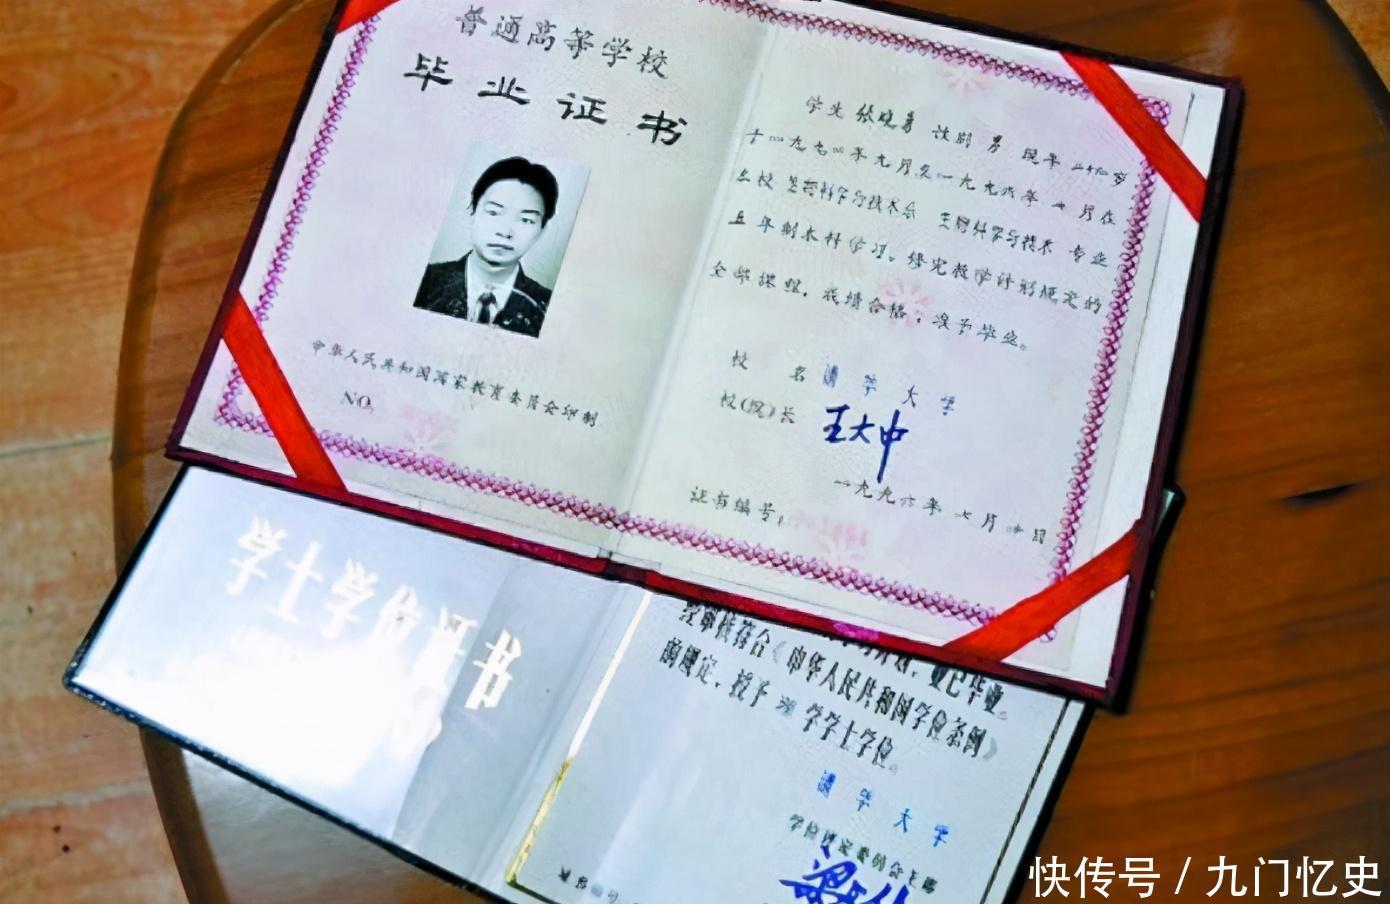 普通高等学校
毕业证书
中华人民共和国国家教育委员会印制
NO.
学生 张晓勇 性别 男 现年 岁
于一九九一年九月至一九九六年七月在
本校 生物科学与技术系 生物科学与技术 专业
五年制本科学习。修完教学计划规定的
全部课程,成绩合格,准予毕业。
校 名 清华大学
校(院)长 王大中
一九九六年七月 日
证书编号:
学士学位证书
业已毕业。
经审核符合《中华人民共和国学位条例》
的规定,授予 理 学学士学位。
清华大学
学位评定委员会主席
快传号 / 九门忆史